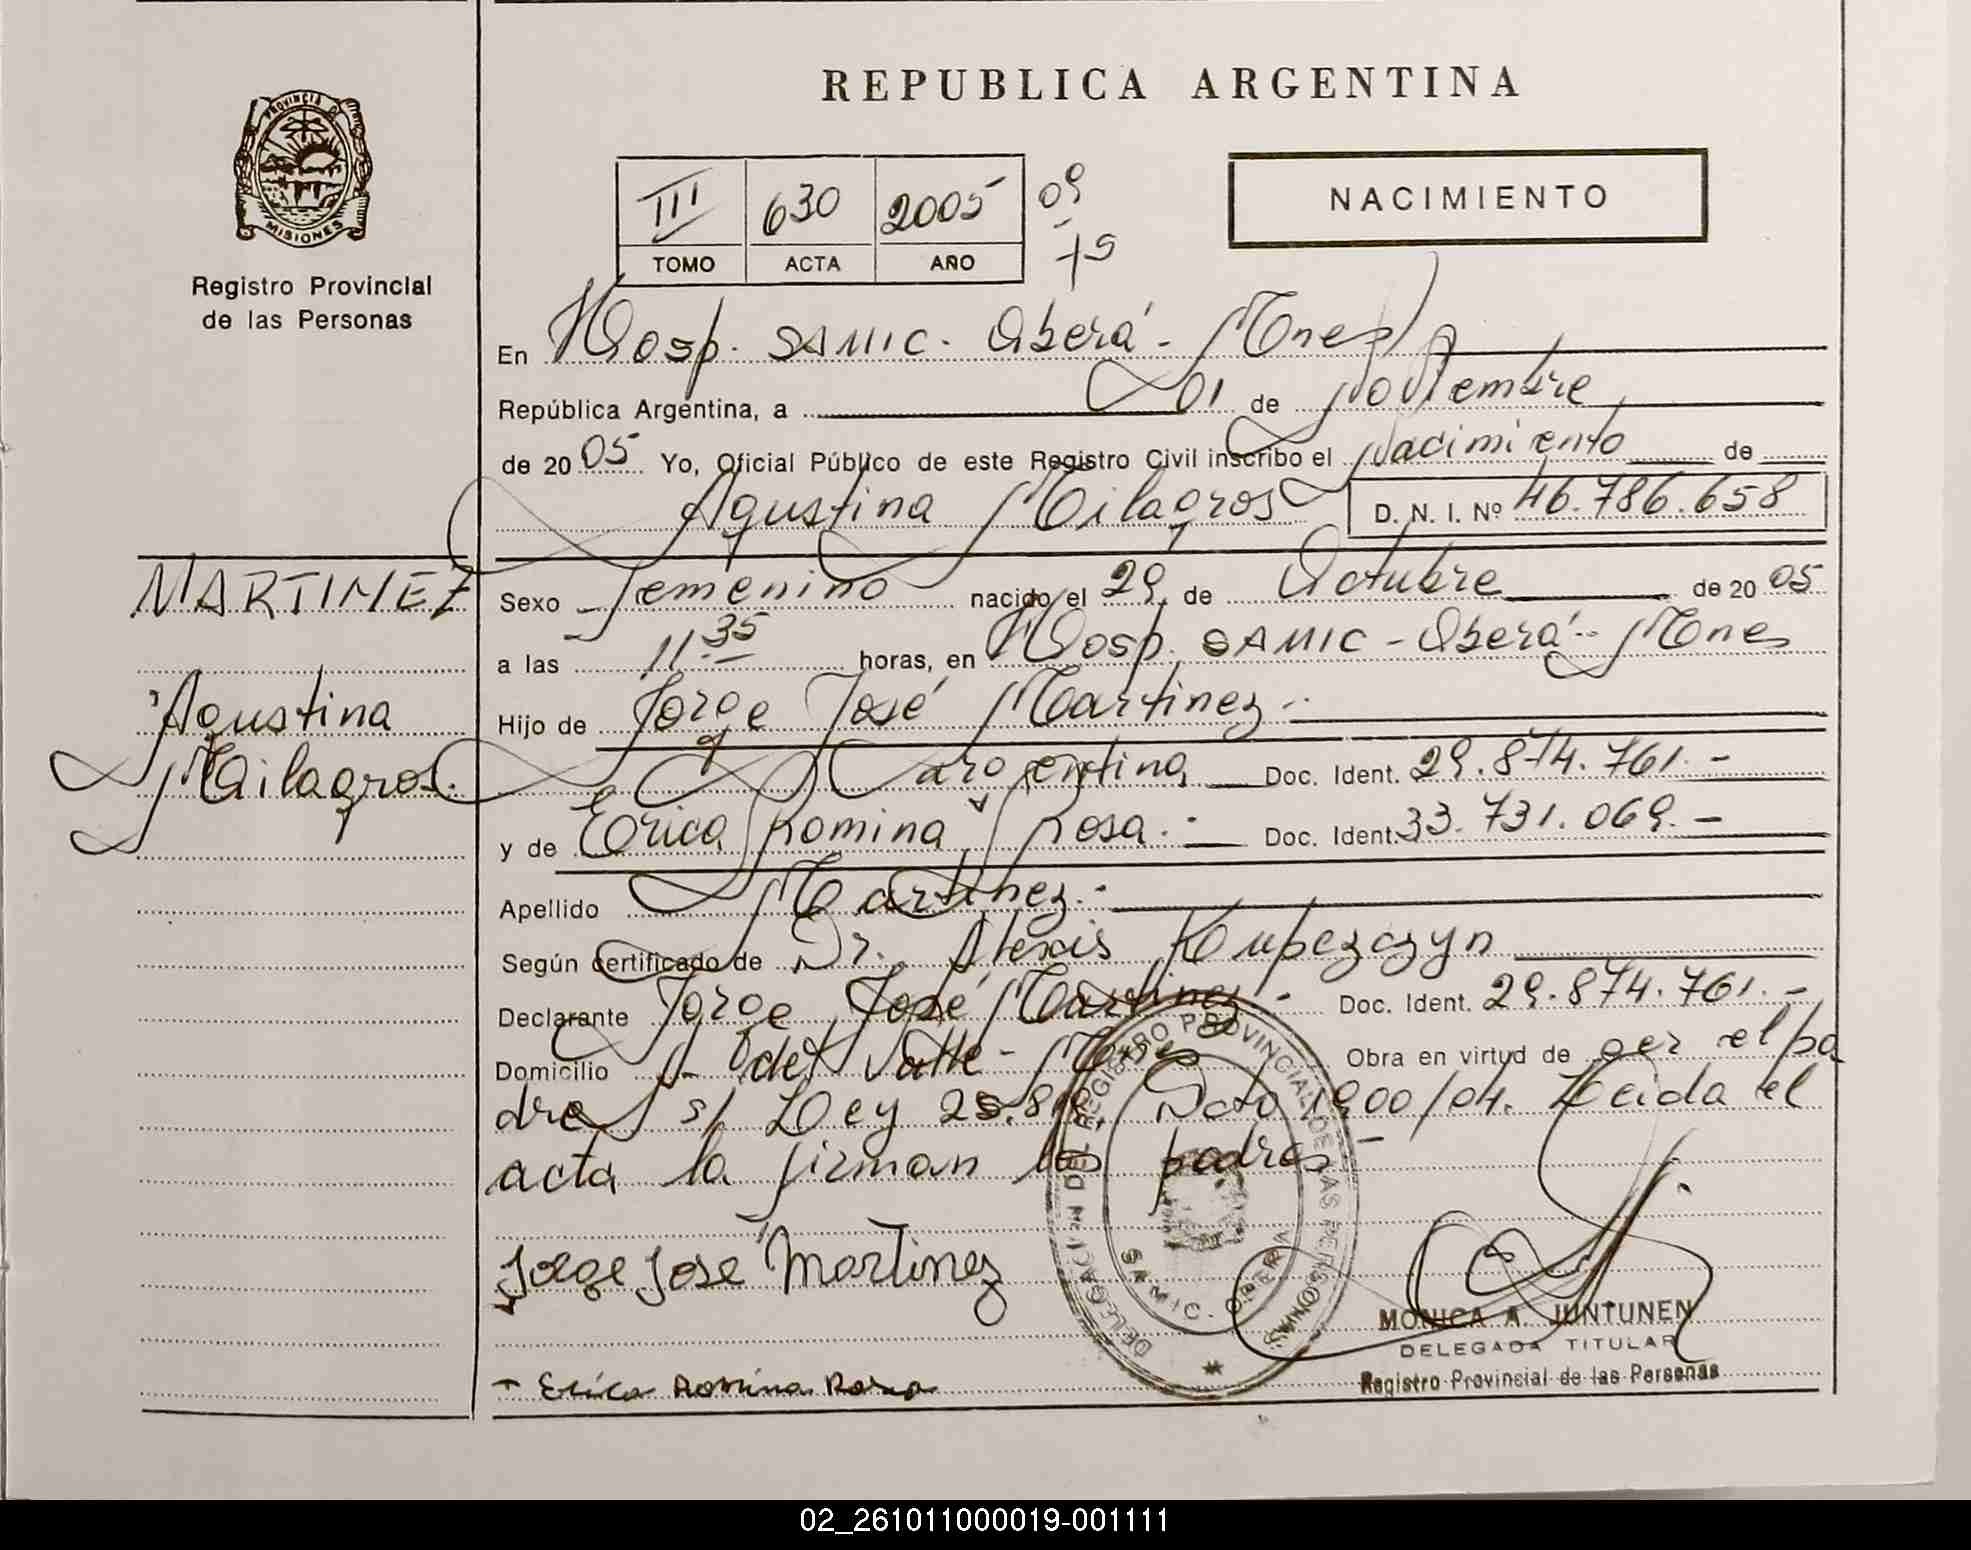 REPUBLICA ARGENTINA
PROVINCIA DE
MISIONES
Registro Provincial
de las Personas
NACIMIENTO
III 630 2005 09
TOMO ACTA AÑO
En Hosp. SAMIC. Oberá - Mnes
República Argentina, a 01 de Noviembre
de 2005 Yo, Oficial Público de este Registro Civil inscribo el Nacimiento de
Agustina Milagros D. N. I. Nº 46.786.658
MARTINEZ
Agustina
Milagros.
Sexo femenino nacido el 29 de Octubre de 2005
a las 11.35 horas, en Hosp. SAMIC - Oberá - Mnes
Hijo de Jorge José Martinez.-
argentino Doc. Ident. 29.874.761.-
y de Erica Romina Rosa.- Doc. Ident. 33.731.069.-
Apellido Martinez.-
Según certificado de Dr. Alexis Kupezczyn
Declarante Jorge José Martinez.- Doc. Ident. 29.874.761.-
Domicilio del Valle - Mnes Obra en virtud de ser el pa
dre s/ Ley Dcto 1900/04. Leida el
acta la firman los padres -
Jorge Jose Martinez
Erica Romina Rosa
DELEGACION DEL REGISTRO PROVINCIAL DE LAS PERSONAS
SAMIC. OBERA
MONICA A. JUNTUNEN
DELEGADA TITULAR
Registro Provincial de las Personas
02_261011000019-001111